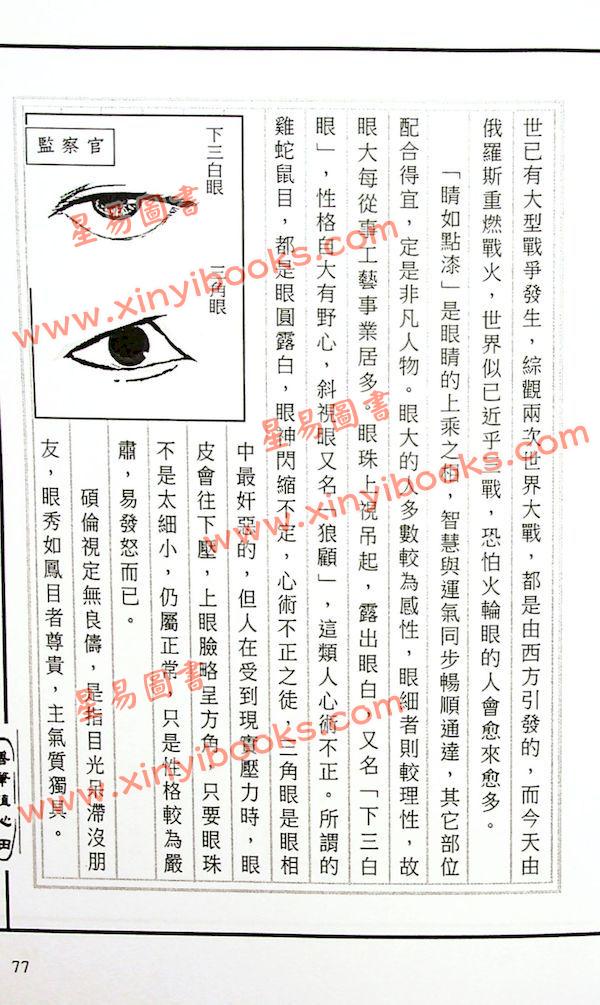 世已有大型戰爭發生，綜觀兩次世界大戰，都是由西方引發的，而今天由
俄羅斯重燃戰火，世界似已近乎戰，恐怕火輪眼的人會愈來愈多。
「睛如點漆」是眼睛的上乘之相，智慧與運氣同步暢順通達，其它部位
配合得宜，定是非凡人物。眼大的人多數較為感性，眼細者則較理性，故
眼大每從事工藝事業居多。眼珠上視吊起，露出眼白，又名「下三白
眼」，性格自大有野心，斜視眼又名「狼顧」，這類人心術不正。所謂的
雞蛇鼠目，都是眼圓露白，眼神閃縮不定，心術不正之徒，三角眼是眼相
中最奸惡的，但人在受到現實壓力時，眼
皮會往下壓，上眼臉略呈方角，只要眼珠
不是太細小，仍屬正常，只是性格較為嚴
肅，易發怒而已。
碩倫視定無良儔，是指目光呆滯沒朋
友，眼秀如鳳目者尊貴，主氣質獨具。
監察官
下三白眼
三角眼
星易圖書
www.xinyibooks.com
星易圖書
www.xinyibooks.com
星易圖書
www.xinyibooks.com
77